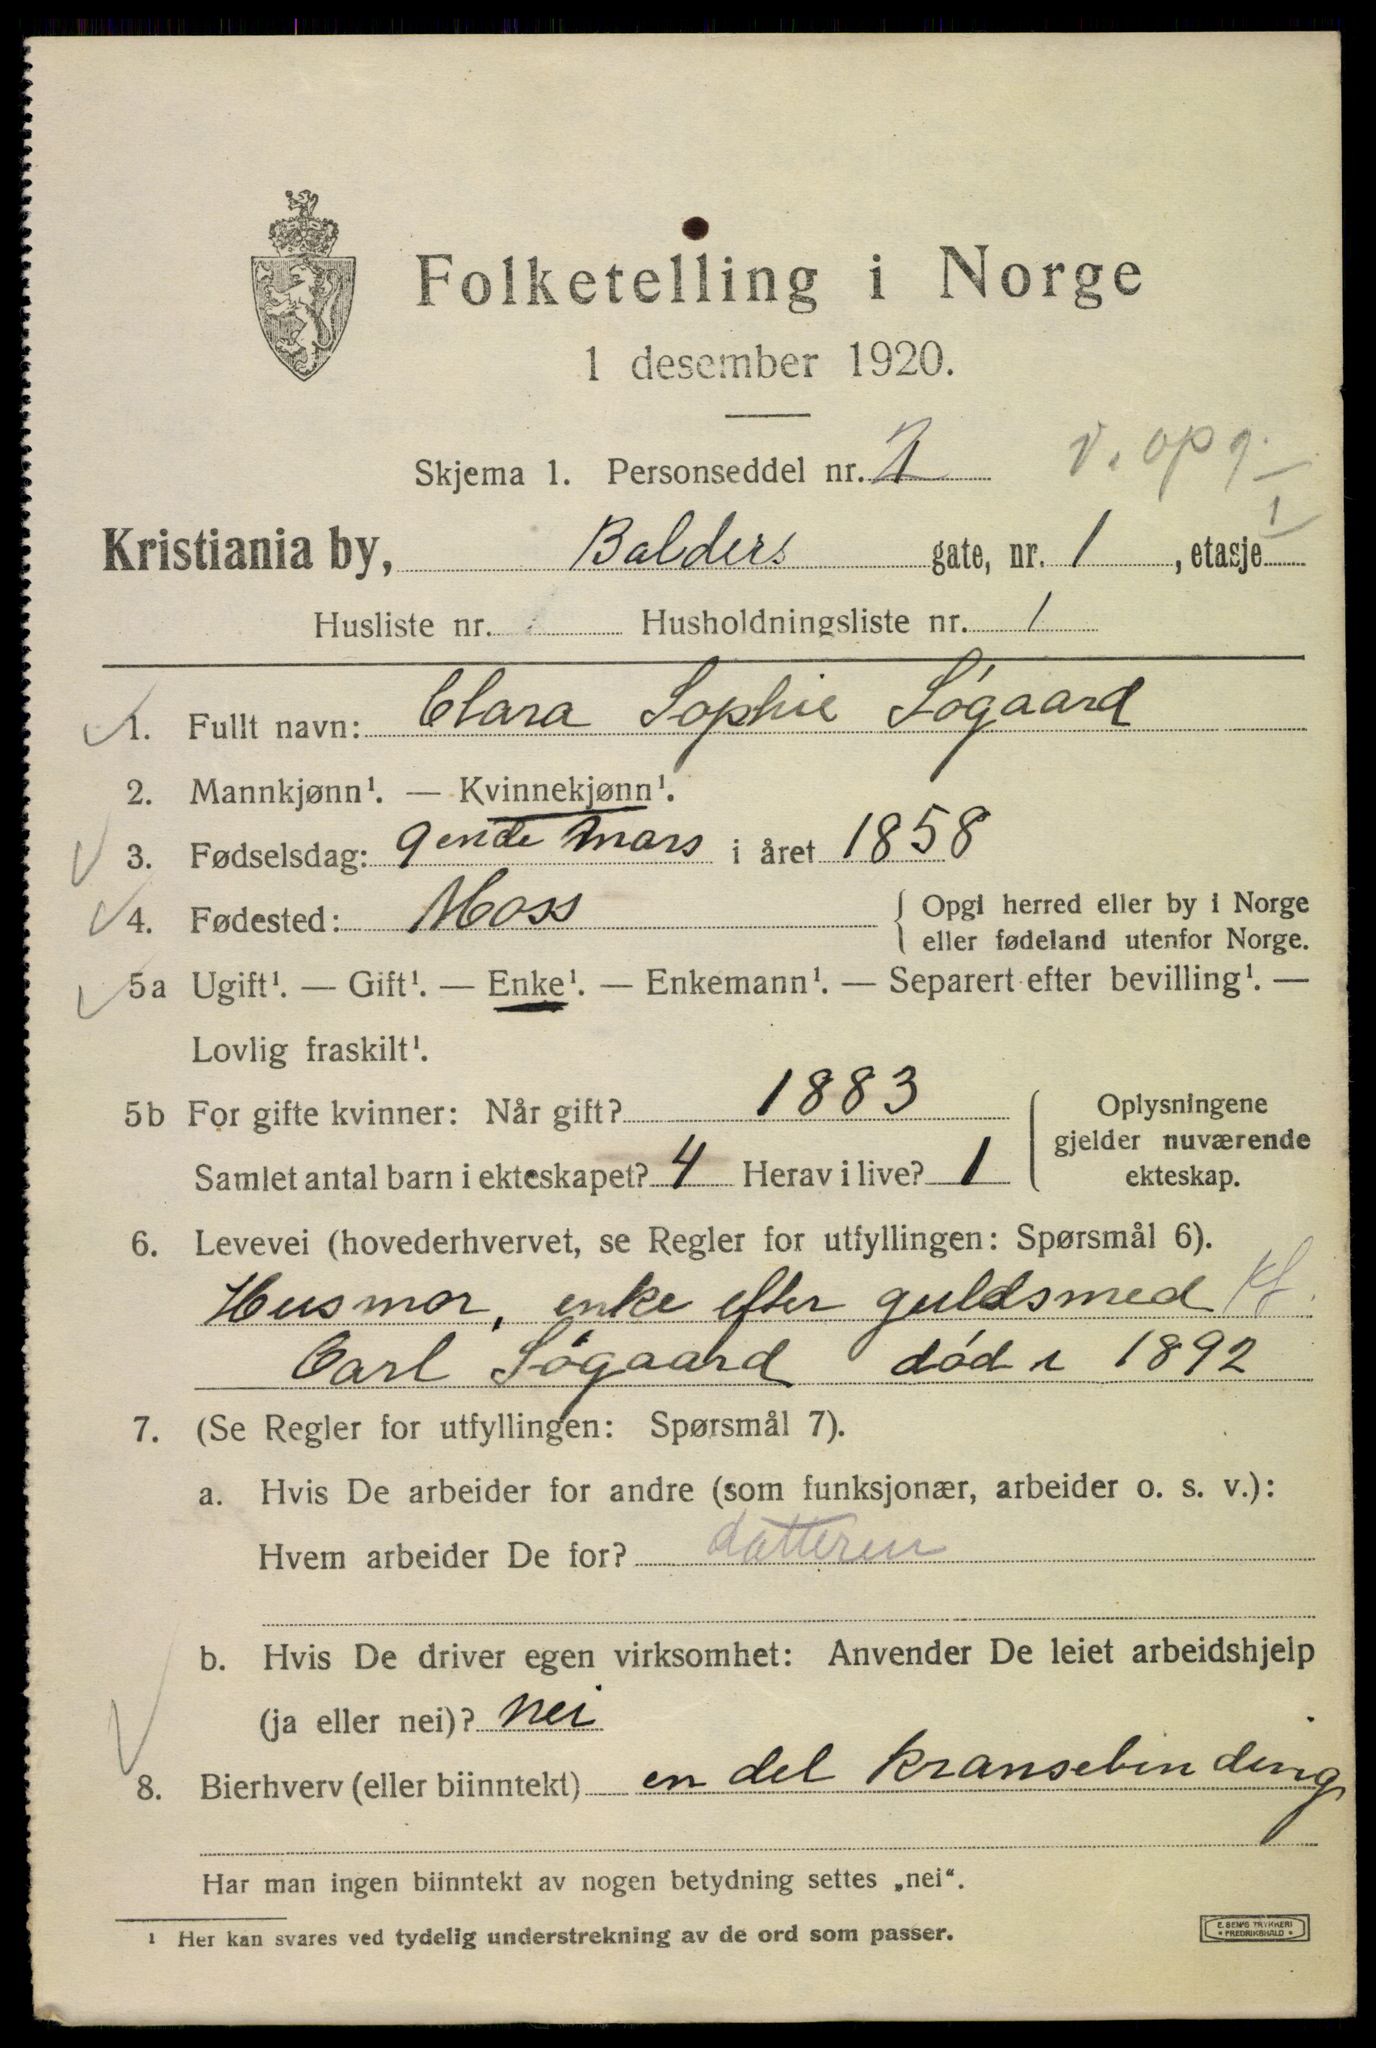 Folketelling i Norge
1 desember 1920.
Skjema 1. Personseddel nr. 2 v. opg.
Kristiania by, Balders gate, nr. 1, etasje 1
Husliste nr. Husholdningsliste nr. 1
1. Fullt navn: Clara Sophie Søgaard
2. Mannkjønn¹. — Kvinnekjønn¹.
3. Fødselsdag: 9ende mars i året 1858
4. Fødested: Moss { Opgi herred eller by i Norge
eller fødeland utenfor Norge.
5a Ugift¹. — Gift¹. — Enke¹. — Enkemann¹. — Separert efter bevilling¹. —
Lovlig fraskilt¹.
5b For gifte kvinner: Når gift? 1883
Samlet antal barn i ekteskapet? 4 Herav i live? 1
{ Oplysningene
gjelder nuværende
ekteskap.
6. Levevei (hovederhvervet, se Regler for utfyllingen: Spørsmål 6).
Husmor, enke efter guldsmed
Carl Søgaard død i 1892
7. (Se Regler for utfyllingen: Spørsmål 7).
a. Hvis De arbeider for andre (som funksjonær, arbeider o. s. v.):
Hvem arbeider De for? datteren
b. Hvis De driver egen virksomhet: Anvender De leiet arbeidshjelp
(ja eller nei)? nei
8. Bierhverv (eller biinntekt) en del kransebinding
Har man ingen biinntekt av nogen betydning settes „nei“.
¹ Her kan svares ved tydelig understrekning av de ord som passer.
E. SEM'S TRYKKERI
* FREDRIKSHALD *